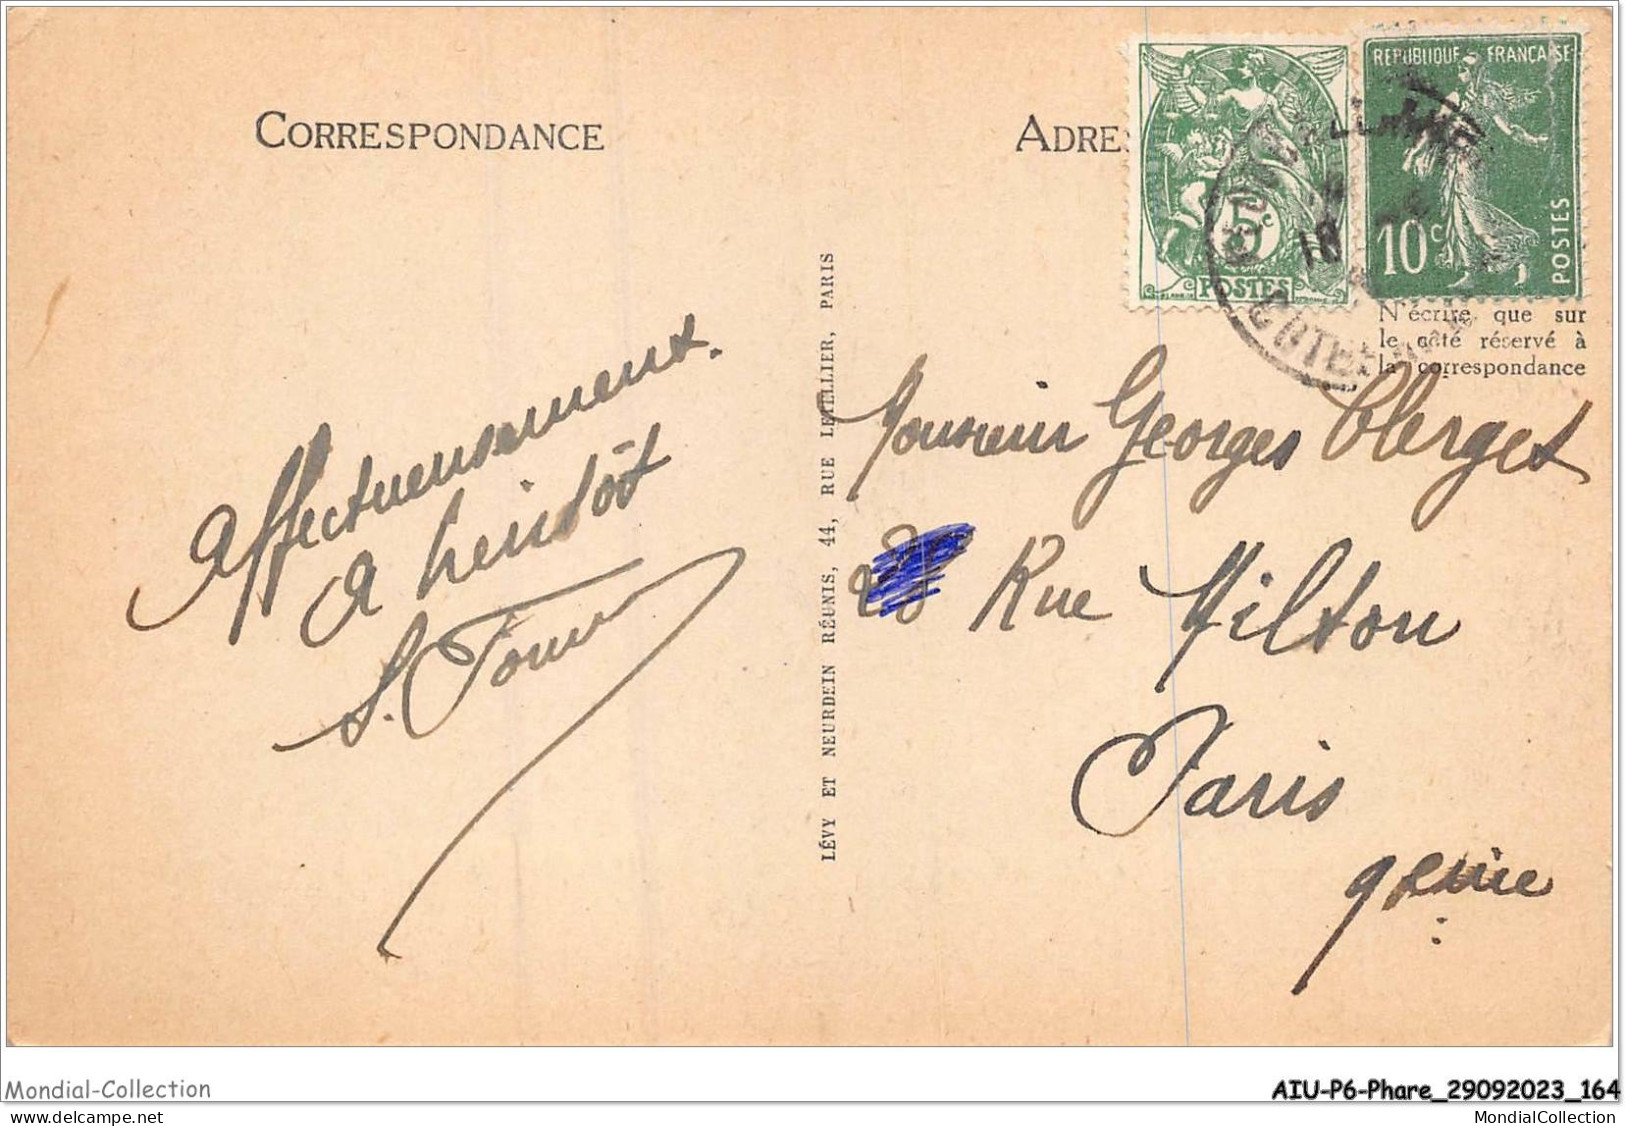 CORRESPONDANCE
ADRES
REPUBLIQUE FRANÇAISE
5c
POSTES
10c
POSTES
N'écrire que sur
le côté réservé à
la correspondance
LÉVY ET NEURDEIN RÉUNIS, 44, RUE LETELLIER, PARIS
Affectueusement.
A bientôt
Monsieur Georges Clerget
Rue Milton
Paris
9eme
Mondial-Collection
AIU-P6-Phare_29092023_164
delcampe.net
MondialCollection